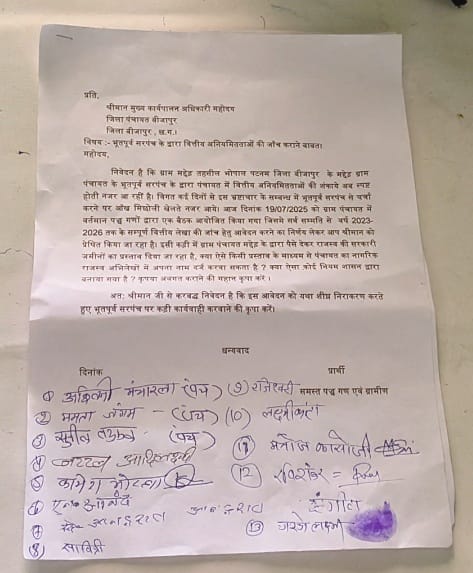 प्रति,
श्रीमान मुख्य कार्यपालन अधिकारी महोदय
जिला पंचायत बीजापुर
जिला बीजापुर, छ.ग.।
विषय :- भूतपूर्व सरपंच के द्वारा वित्तीय अनियमितताओं की जाँच कराने बाबत।
महोदय,
निवेदन है कि ग्राम मद्देड़ तहसील भोपाल पटनम जिला बीजापुर के मद्देड़ ग्राम
पंचायत के भूतपूर्व सरपंच के द्वारा पंचायत में वित्तीय अनियमितताओं की शंकाये अब स्पष्ट
होती नजर आ रही है। विगत कई दिनों से इस भ्रष्टाचार के सम्बन्ध में भूतपूर्व सरपंच से चर्चा
करने पर आँख मिचोली खेलते नजर आये। आज दिनांक 19/07/2025 को ग्राम पंचायत में
वर्तमान पद्ध गणों द्वारा एक बैठक आयोजित किया गया जिसमे सर्व सम्मति से वर्ष 2023-
2026 तक के सम्पूर्ण वित्तीय लेखा की जाँच हेतु आवेदन करने का निर्णय लेकर आप श्रीमान को
प्रेषित किया जा रहा है। इसी कड़ी में ग्राम पंचायत मद्देड़ के द्वारा पैसे देकर राजस्व की सरकारी
जमीनों का प्रस्ताव दिया जा रहा है, क्या ऐसे किसी प्रस्ताव के माध्यम से पंचायत का नागरिक
राजस्व अभिलेखों में अपना नाम दर्ज करवा सकता है ? क्या ऐसा कोई नियम शासन द्वारा
बनाया गया है ? कृपया अवगत कराने की महान कृपा करें।
अत: श्रीमान जी से करबद्ध निवेदन है कि इस आवेदन को यथा शीघ्र निराकरण करते
हुए भूतपूर्व सरपंच पर कड़ी कार्यवाही करवाने की कृपा करें।
धन्यवाद
दिनांक प्रार्थी
समस्त पद्ध गण एवं ग्रामीण
① (पंच) ⑨ राजेश्वरी
② ममता जंगम - (पंच) (10) लक्ष्मीकांता
③ (पंच)
⑪ मनोज
④
⑤ कामेश
⑫
⑥
⑦ आनंदराव
⑬
⑧ सावित्री